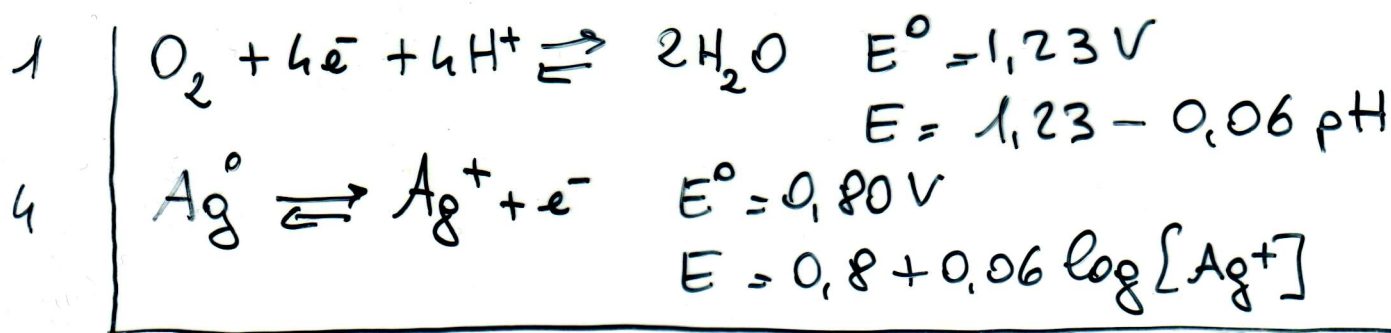 1 | O₂ + 4e⁻ + 4H⁺ ⇌ 2H₂O E⁰ = 1,23 V
E = 1,23 - 0,06 pH
4 | Ag⁰ ⇌ Ag⁺ + e⁻ E⁰ = 0,80 V
E = 0,8 + 0,06 log [Ag⁺]